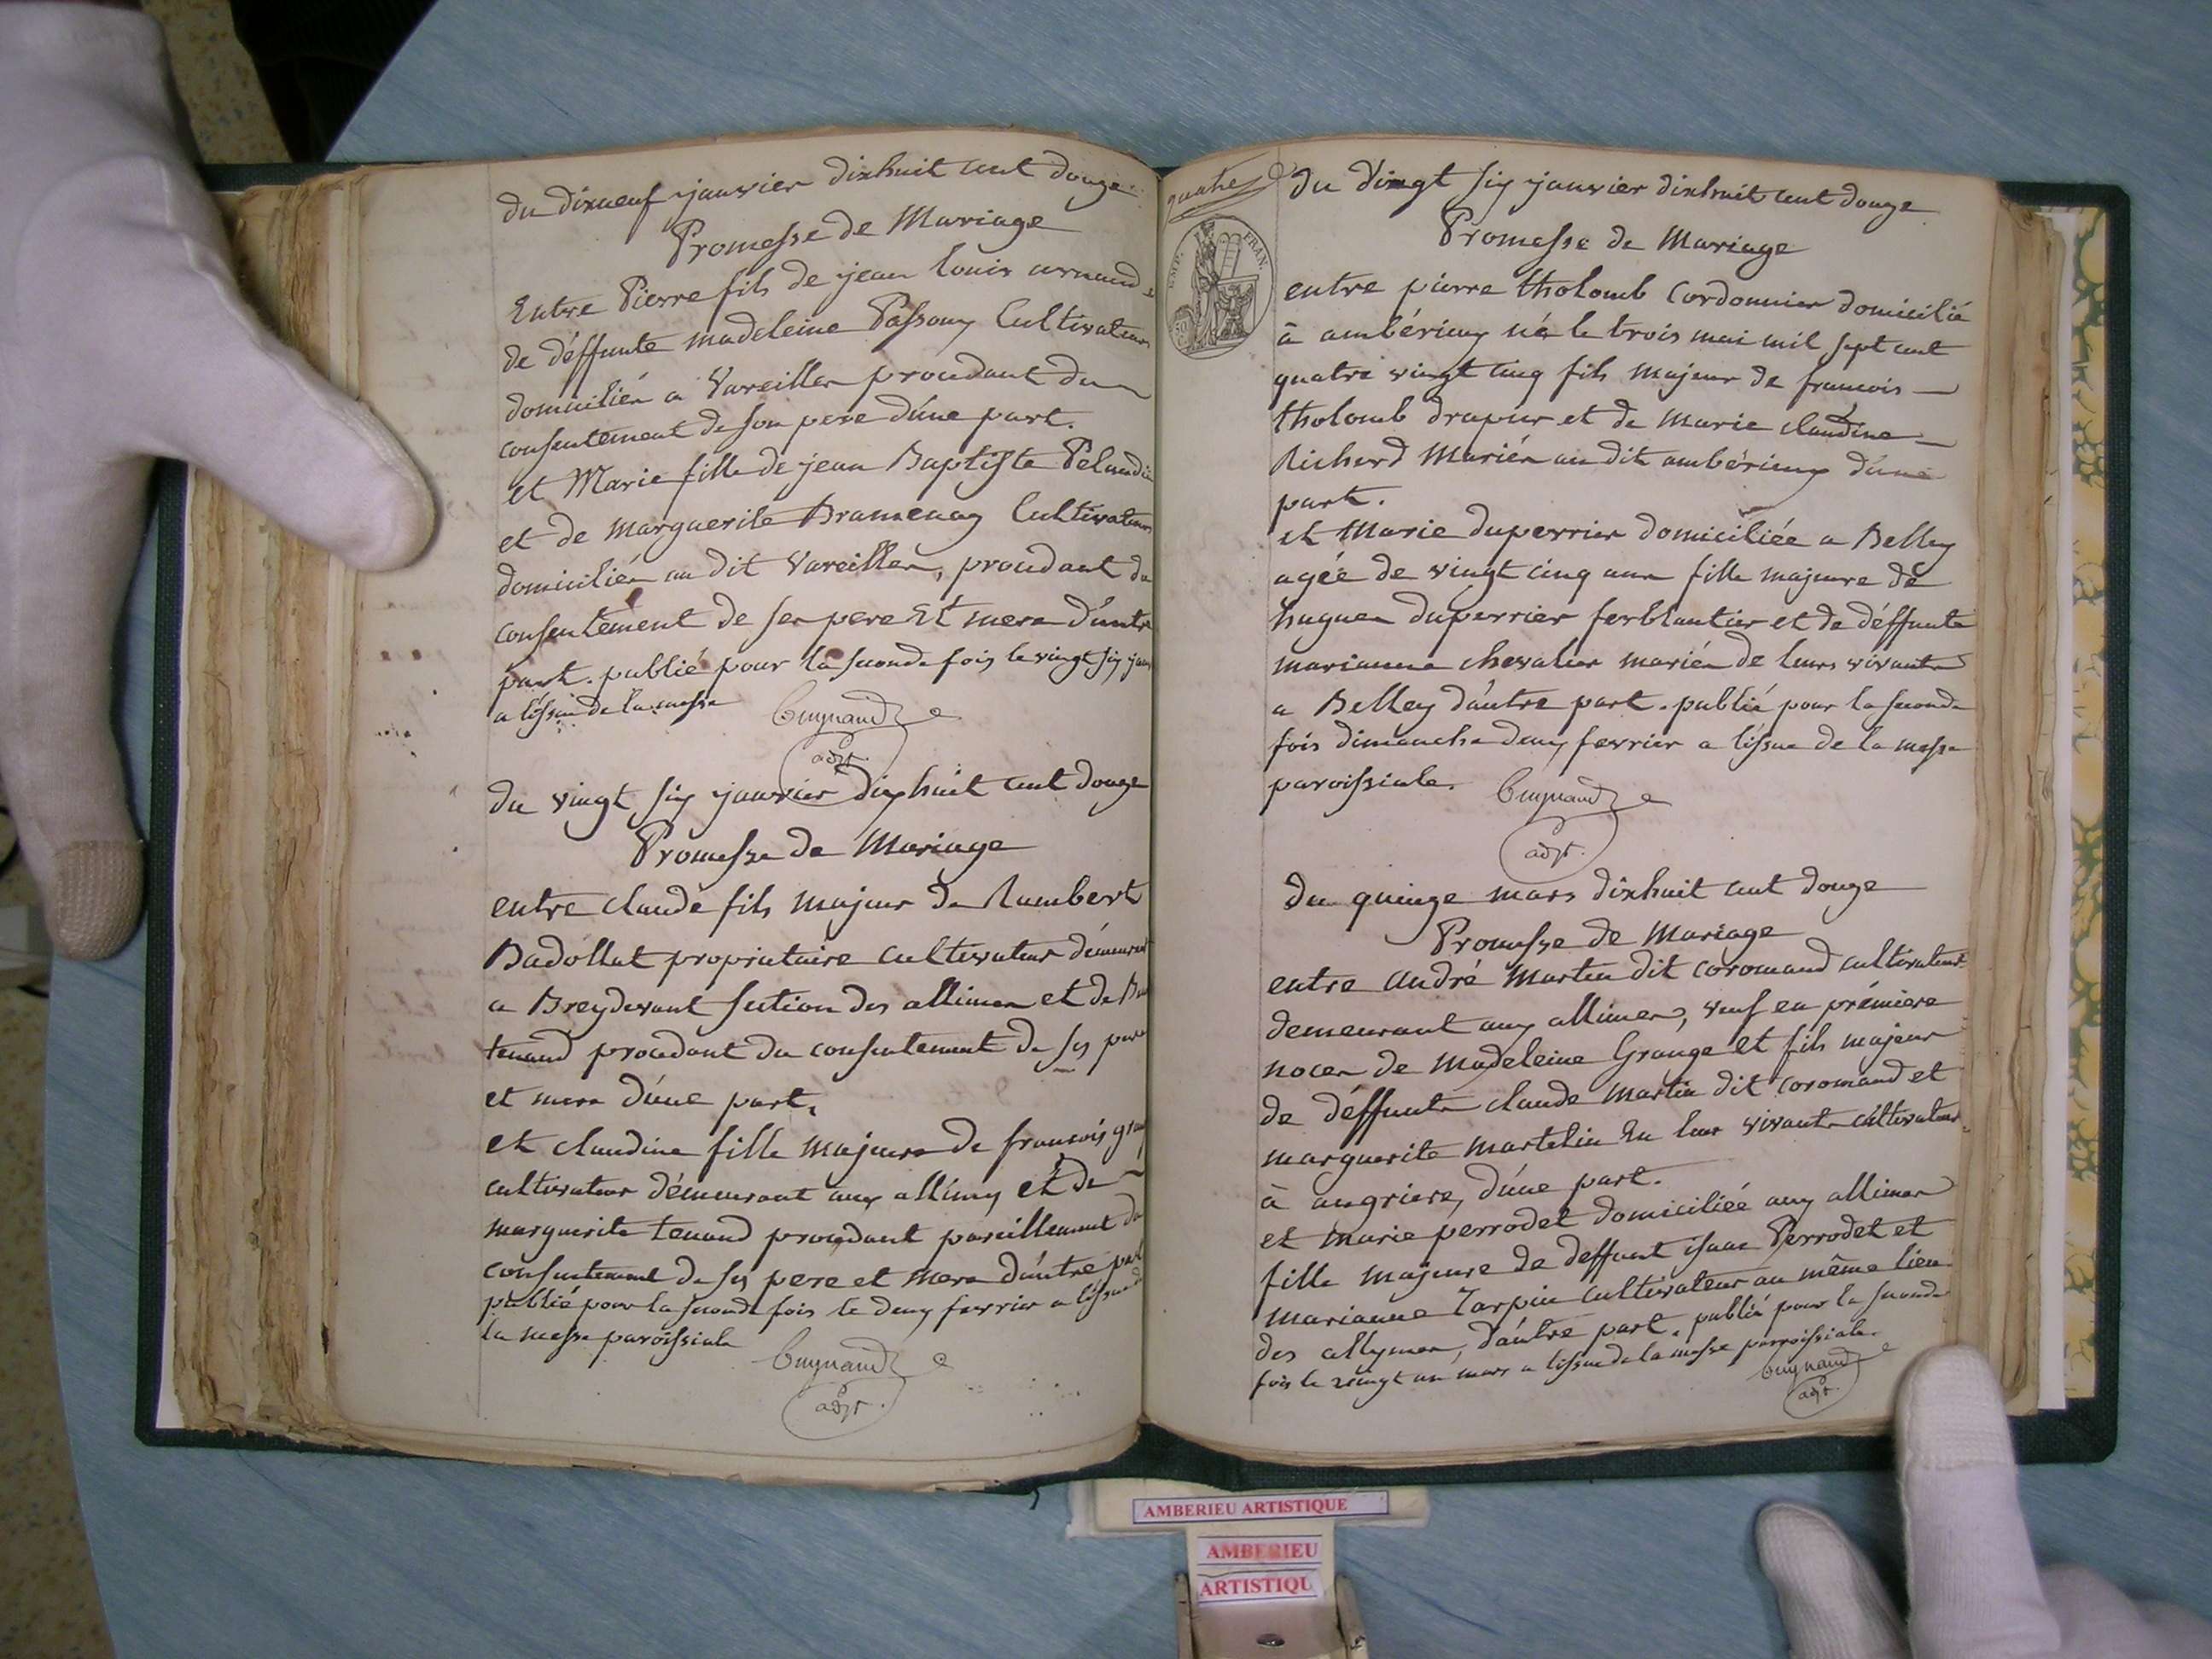 du dixneuf janvier dixhuit cent douze
Promesse de Mariage
Entre Pierre fils de jean louis arnaud &
de déffunte madeleine Passony Cultivateurs
domiciliés a Vareilles procedant du
consentement de son pere d'une part.
et Marie fille de jean Baptiste
et de marguerite Bramenay Cultivateurs
domiciliés au dit Vareilles, procedant du
consentement de ses pere Et mere d'autre
part. publié pour la seconde fois le vingt six janv
a l'issue de la messe
Cuynaud
adjt.
du vingt six janvier dixhuit cent douze
Promesse de Mariage
entre claude fils majeur de Rambert
Badollat proprietaire cultivateur démeurant
a Breydevant section des allimes et de
tenand procedant du consentement de ses pere
et mere d'une part.
et claudine fille majeure de francois
cultivateur démeurant aux allimes et de
marguerite tenand procedant pareillement du
consentement de ses pere et mere d'autre part
publié pour la seconde fois le deux fevrier a l'issue de
la messe paroissiale
Cuynaud
adjt.
quatre
EMP. FRAN.
50
du vingt six janvier dixhuit cent douze
Promesse de Mariage
entre pierre tholomb Cordonnier domicilié
à ambérieux né le trois mai mil sept cent
quatre vingt cinq fils majeur de francois
tholomb drapier et de marie claudine
Richerd Mariés au dit ambérieux d'une
part.
et Marie duperrier domiciliée a Belley
agée de vingt cinq ans fille majeure de
hugues duperrier ferblantier et de déffunte
marianne chevalier mariés de leurs vivants
a Belley d'autre part. publié pour la seconde
fois dimanche deux fevrier a l'issue de la messe
paroissiale.
Cuynaud
adjt.
du quinze mars dixhuit cent douze
Promesse de Mariage
entre andré Martin dit coromand cultivateur
demeurant aux allimes, veuf en prémiere
noces de Madeleine Grange et fils majeur
de déffunts claude Martin dit coromand et
marguerite martelin En leur vivants cultivateurs
à angriere, d'une part.
et marie perrodet domiciliée aux allimes
fille majeure de deffunt isaac Perrodet et
marianne Tarpin Cultivateur au même lieu
des allymes, d'autre part. publié pour la seconde
fois le vingt un mars a l'issue de la messe parroissiale.
Cuynaud
adjt.
AMBERIEU ARTISTIQUE
AMBERIEU
ARTISTIQU